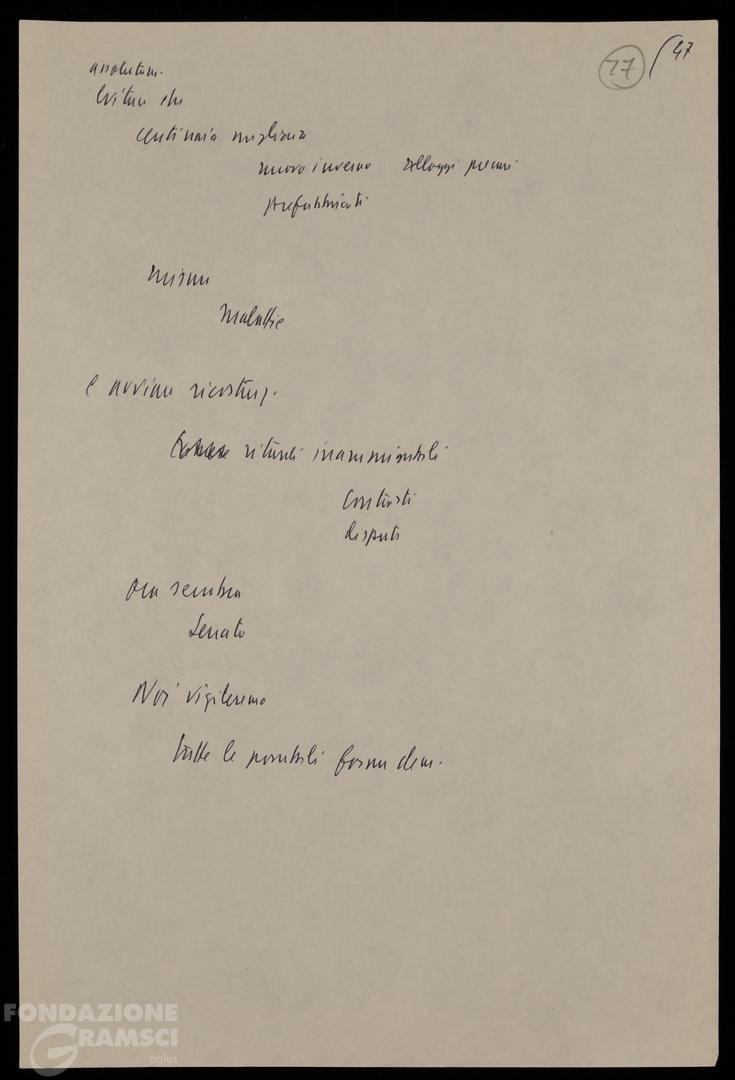 27 (47
assolutam.
Evitare che
centinaia migliaia
nuovo inverno alloggi precari
prefabbricati
miseria
malattie
e avviare ricostruz.
ritardi inammissibili
contrasti
dispute
ora sembra
Senato
Noi vigileremo
tutte le possibili forme dem.
FONDAZIONE
GRAMSCI
onlus